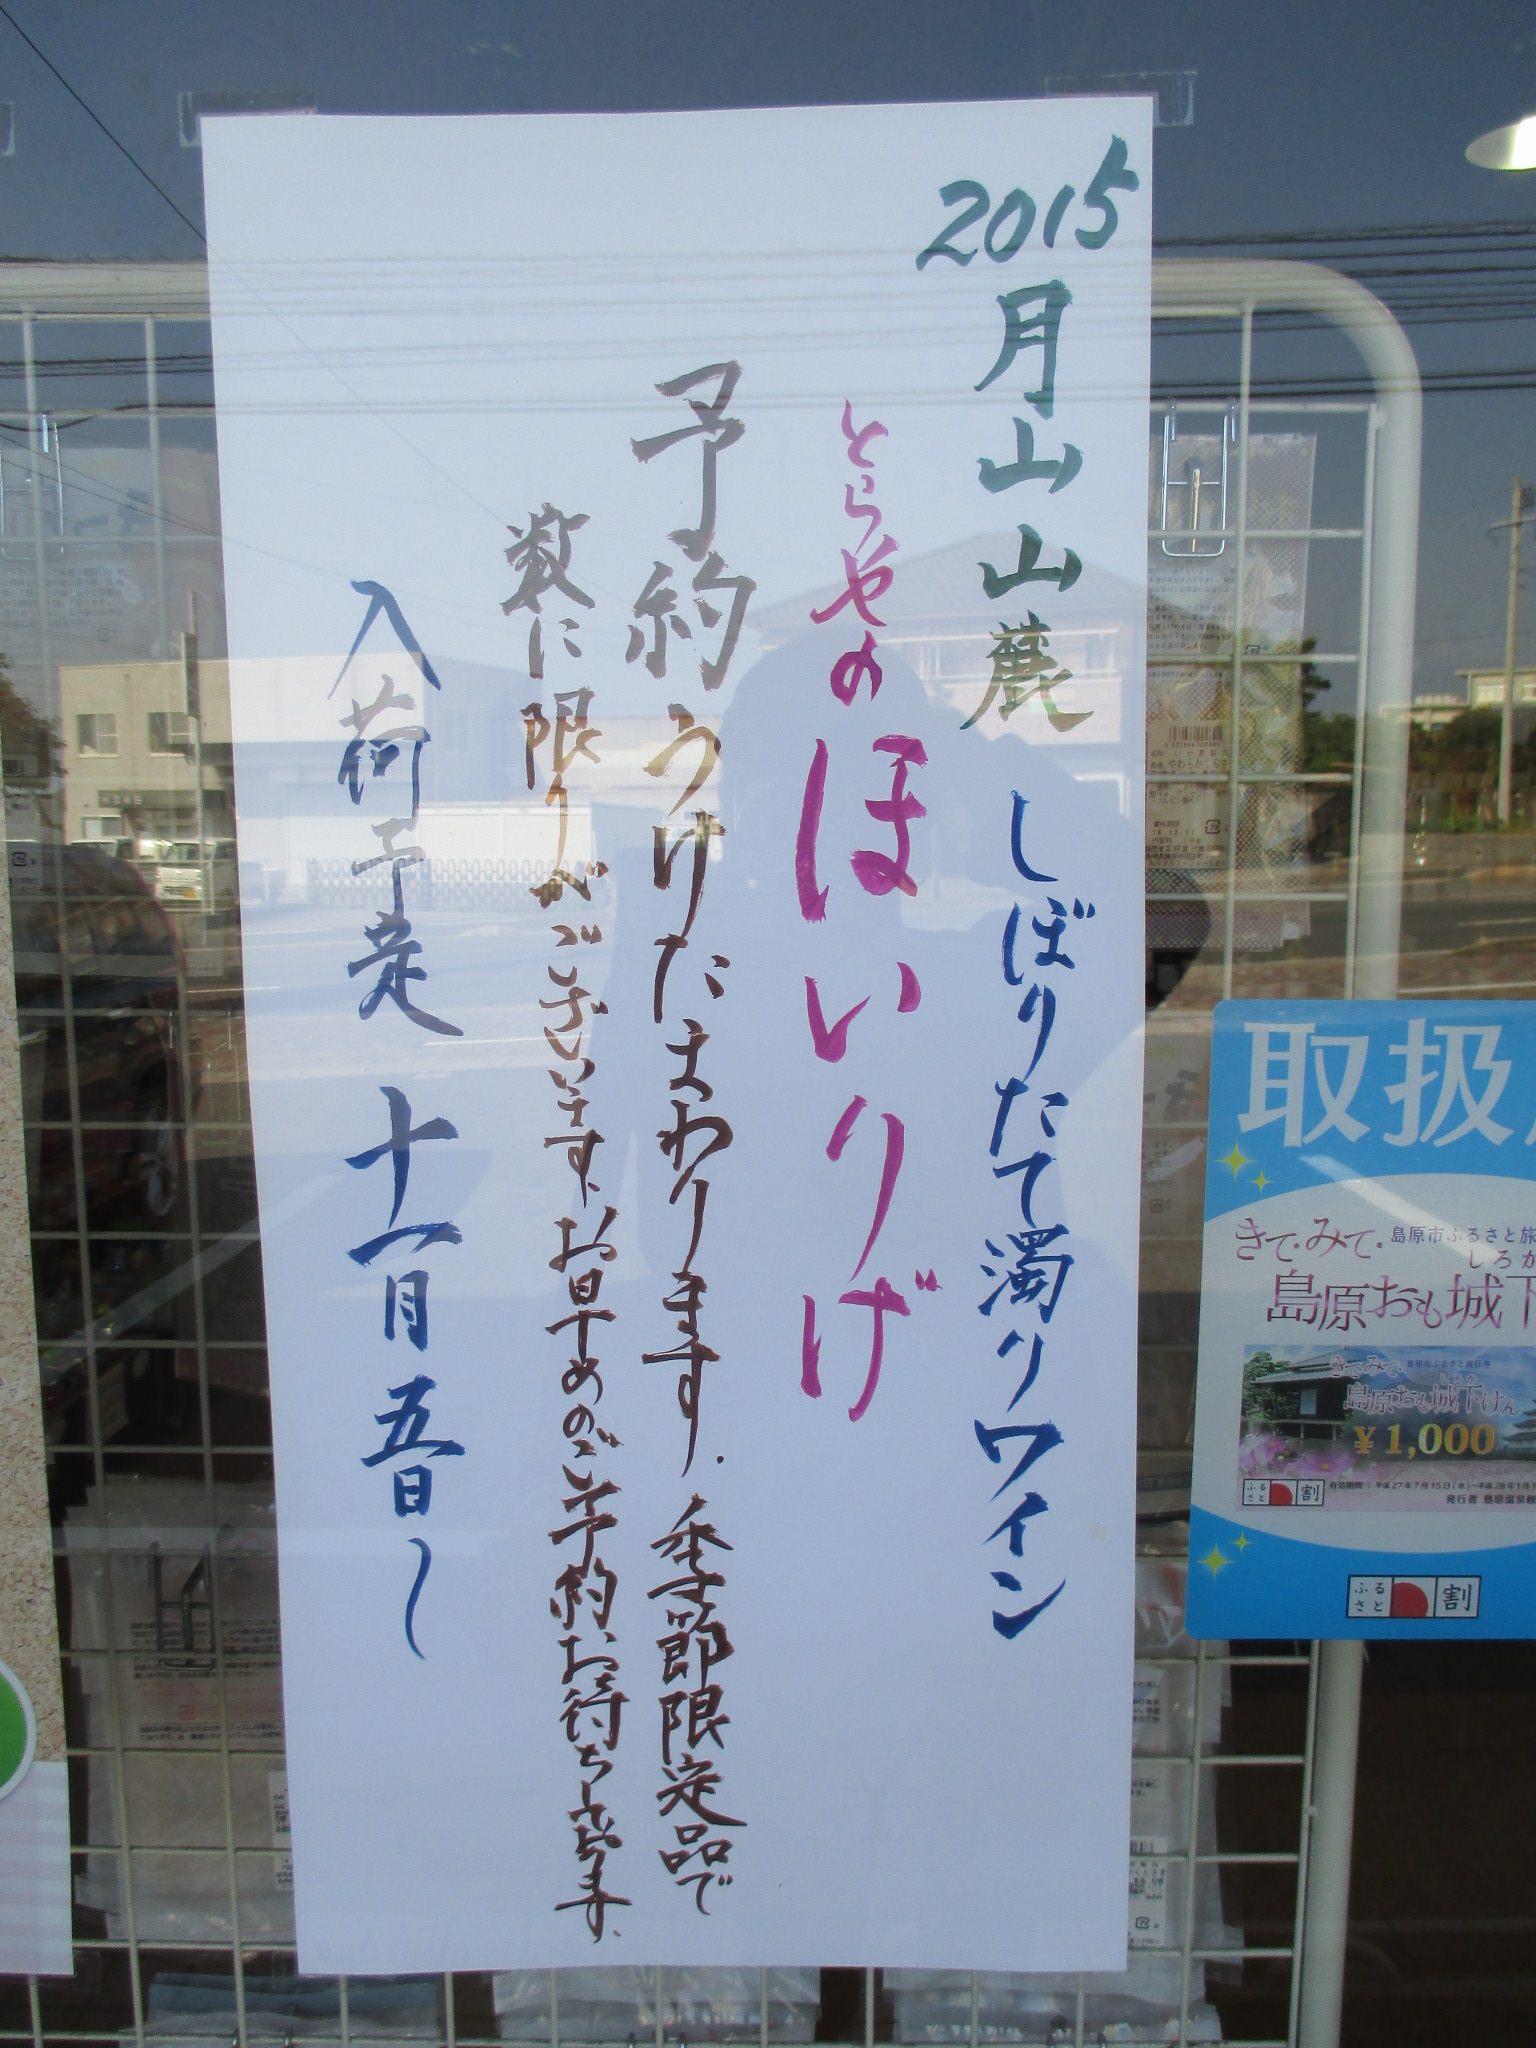 2015月山山麓 しぼりたて濁りワイン
とらやの ほいりげ
予約うけたまわります. 季節限定品で
数に限りがございます、お早めのご予約お待ちします、
入荷予定 十一月五日〜
取扱
きて・みて・
島原市ふるさと旅
しろか
島原おも城下
きて・みて・
島原市ふるさと旅行券
島原おも城下けん
¥1,000
ふるさと割
有効期間：平成27年7月15日(水)～平成28年1月
発行者 島原温泉観
ふるさと割